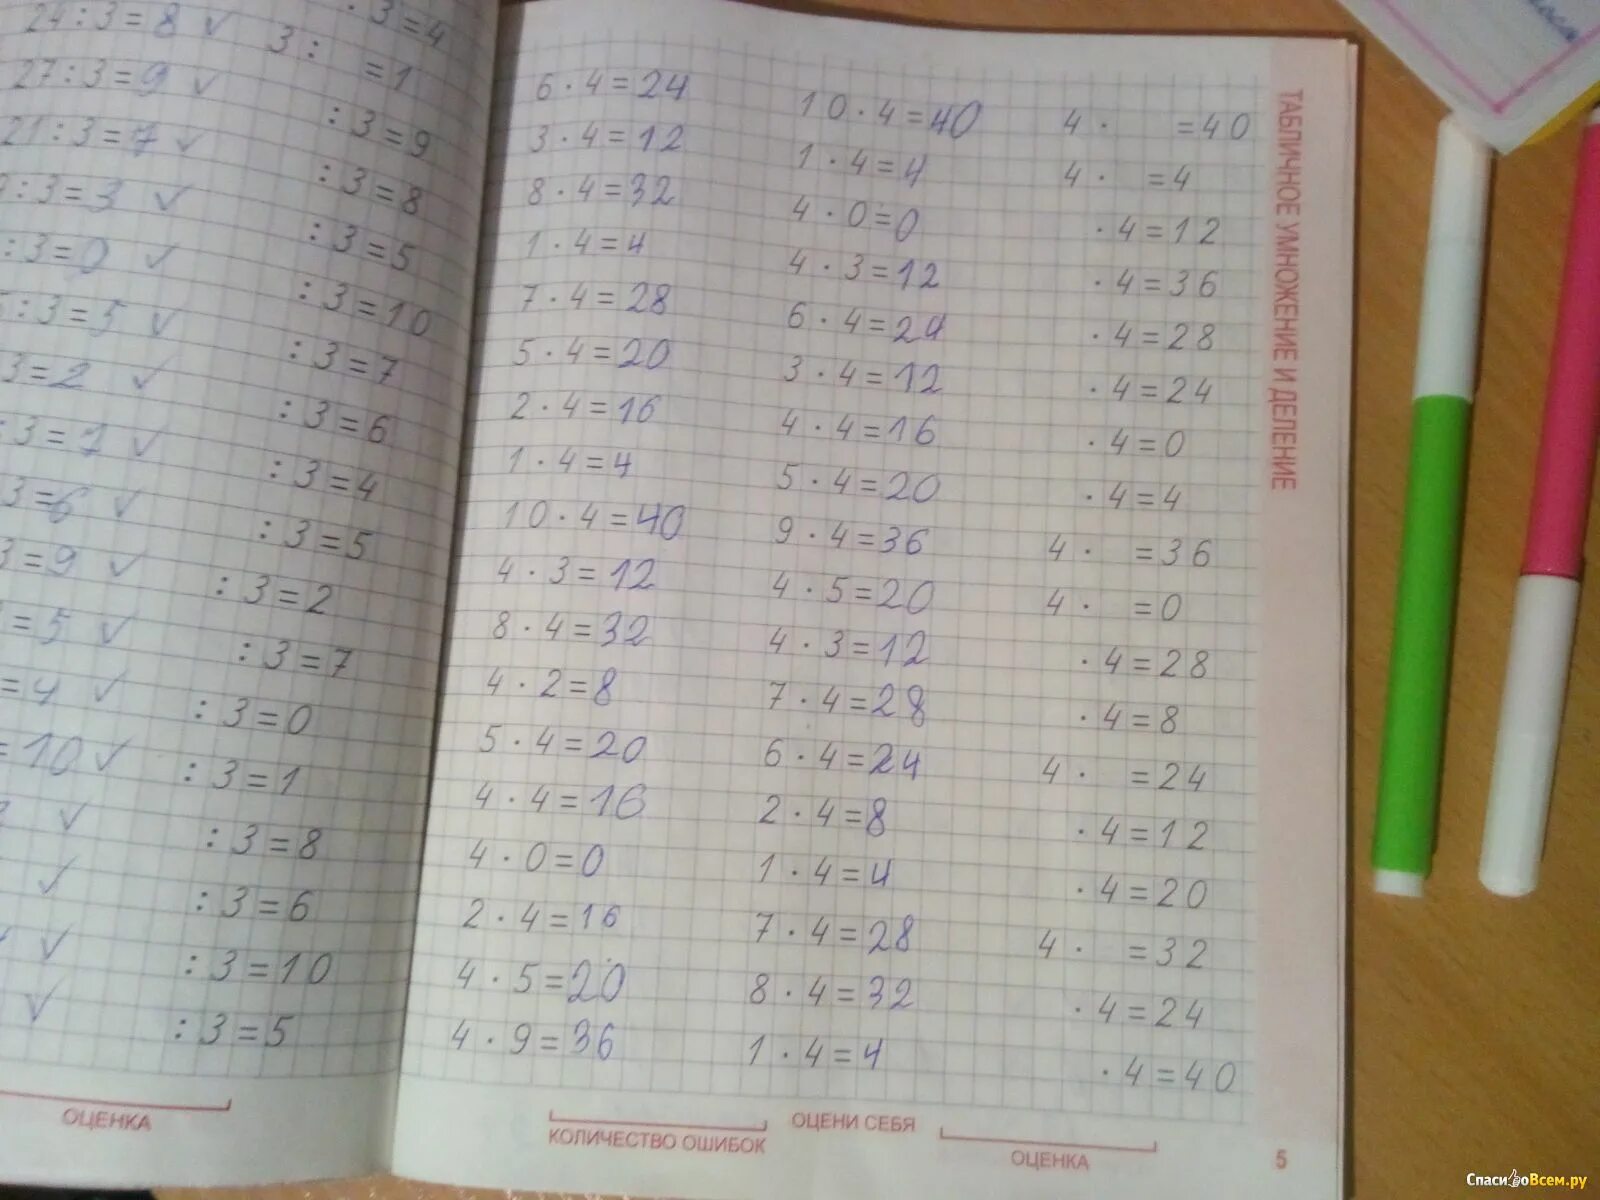 24:3=8 ✓
27:3=9 ✓
21:3=7 ✓
:3=3 ✓
:3=0 ✓
5:3=5 ✓
3=2 ✓
:3=1 ✓
3=6 ✓
3=9 ✓
=5 ✓
=4 ✓
=10 ✓
✓
✓
✓
✓
· 3=4
3: =1
:3=9
:3=8
:3=5
:3=10
:3=7
:3=6
:3=4
:3=5
:3=2
:3=7
:3=0
:3=1
:3=8
:3=6
:3=10
:3=5
ОЦЕНКА
6·4=24
3·4=12
8·4=32
1·4=4
7·4=28
5·4=20
2·4=16
1·4=4
10·4=40
4·3=12
8·4=32
4·2=8
5·4=20
4·4=16
4·0=0
2·4=16
4·5=20
4·9=36
10·4=40
1·4=4
4·0=0
4·3=12
6·4=24
3·4=12
4·4=16
5·4=20
9·4=36
4·5=20
4·3=12
7·4=28
6·4=24
2·4=8
1·4=4
7·4=28
8·4=32
1·4=4
4· =40
4· =4
·4=12
·4=36
·4=28
·4=24
·4=0
·4=4
4· =36
4· =0
·4=28
·4=8
4· =24
·4=12
·4=20
4· =32
·4=24
·4=40
ТАБЛИЧНОЕ УМНОЖЕНИЕ И ДЕЛЕНИЕ
ОЦЕНИ СЕБЯ
КОЛИЧЕСТВО ОШИБОК
ОЦЕНКА
5
СпасибоВсем.ру